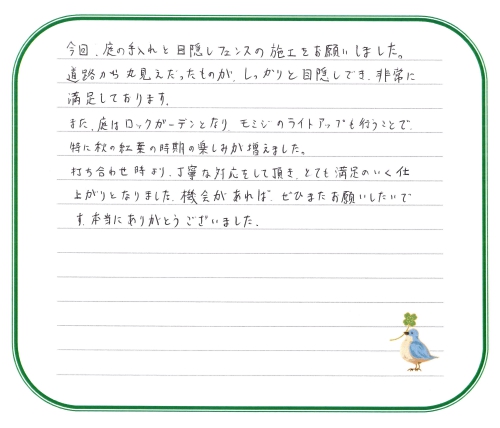 今回、庭の手入れと目隠しフェンスの施工をお願いしました。
道路から丸見えだったものが、しっかりと目隠しでき、非常に
満足しております。
また、庭はロックガーデンとなり、モミジのライトアップも行うことで、
特に秋の紅葉の時期の楽しみが増えました。
打ち合わせ時より、丁寧な対応をして頂き、とても満足のいく仕
上がりとなりました。機会があれば、ぜひまたお願いしたいで
す。本当にありがとうございました。